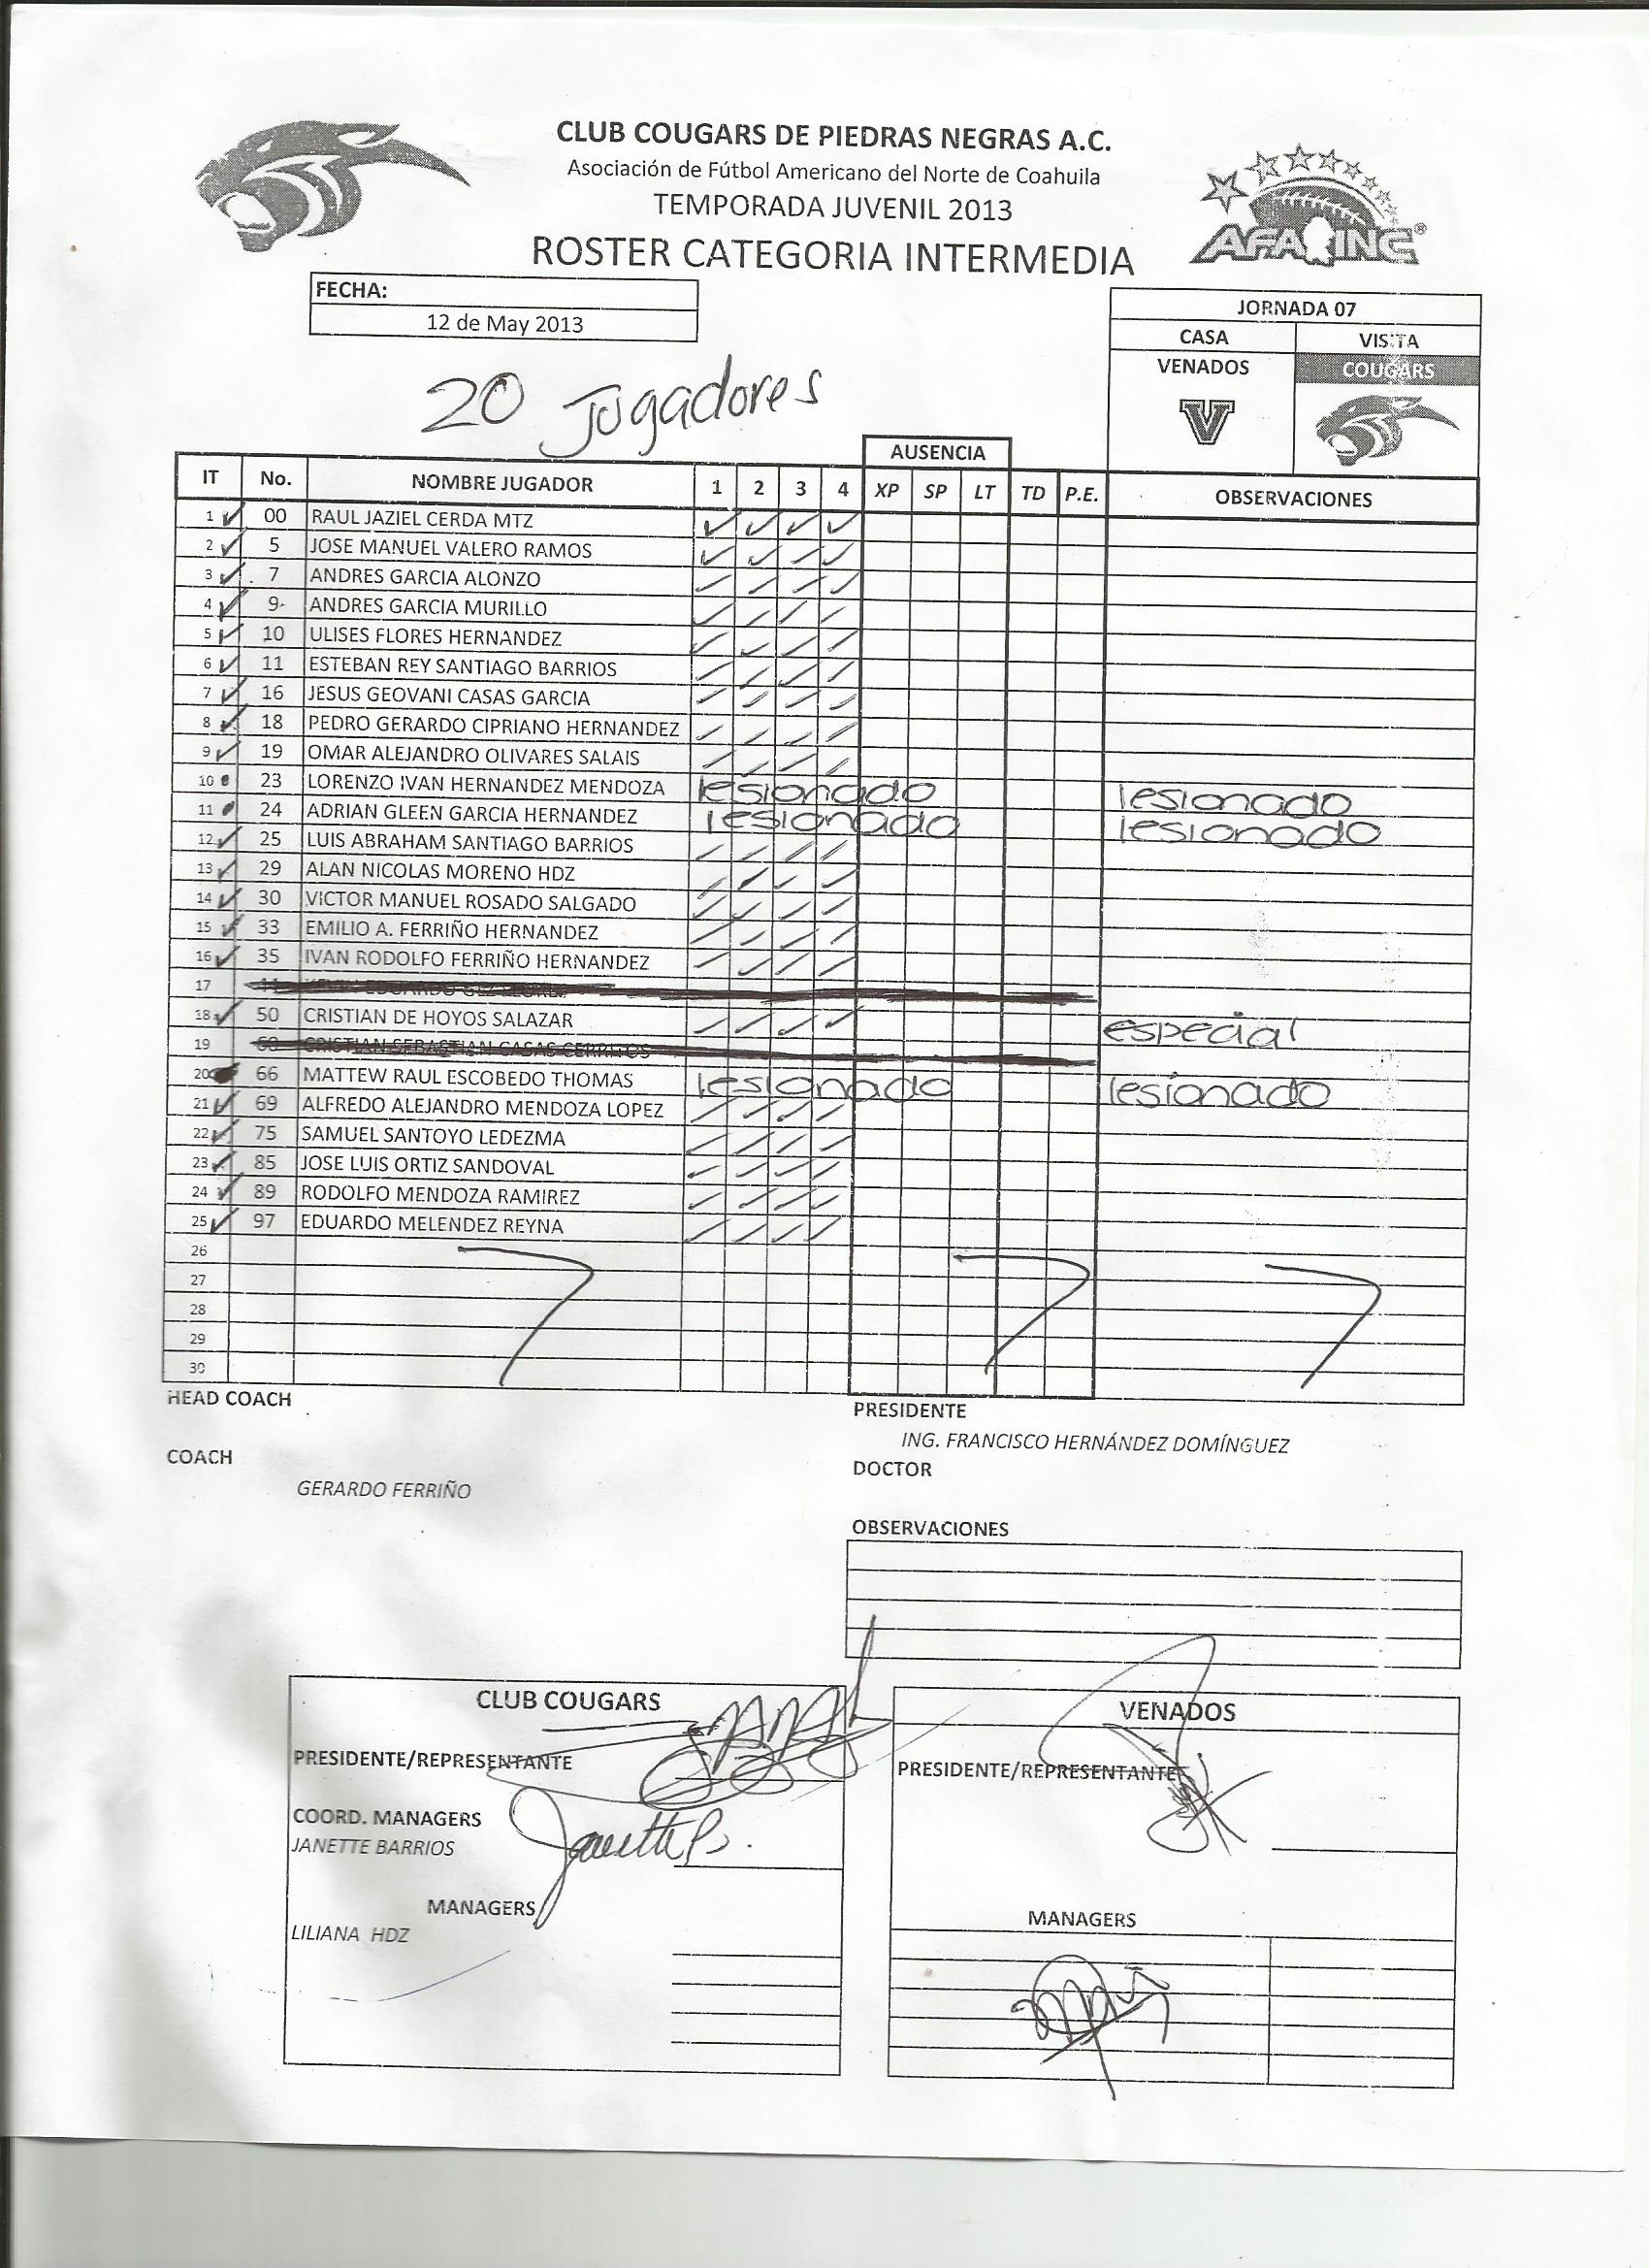 CLUB COUGARS DE PIEDRAS NEGRAS A.C.
Asociación de Fútbol Americano del Norte de Coahuila
TEMPORADA JUVENIL 2013
ROSTER CATEGORIA INTERMEDIA
AFAINC®
FECHA:
12 de May 2013
JORNADA 07
CASA VISITA
VENADOS COUGARS
V
20 Jugadores
AUSENCIA
IT No. NOMBRE JUGADOR 1 2 3 4 XP SP LT TD P.E. OBSERVACIONES
1 ✓ 00 RAUL JAZIEL CERDA MTZ ✓ ✓ ✓ ✓
2 ✓ 5 JOSE MANUEL VALERO RAMOS ✓ ✓ ✓ ✓
3 ✓ 7 ANDRES GARCIA ALONZO ✓ ✓ ✓ ✓
4 ✓ 9 ANDRES GARCIA MURILLO ✓ ✓ ✓ ✓
5 ✓ 10 ULISES FLORES HERNANDEZ ✓ ✓ ✓ ✓
6 ✓ 11 ESTEBAN REY SANTIAGO BARRIOS ✓ ✓ ✓ ✓
7 ✓ 16 JESUS GEOVANI CASAS GARCIA ✓ ✓ ✓ ✓
8 ✓ 18 PEDRO GERARDO CIPRIANO HERNANDEZ ✓ ✓ ✓ ✓
9 ✓ 19 OMAR ALEJANDRO OLIVARES SALAIS ✓ ✓ ✓ ✓
10 23 LORENZO IVAN HERNANDEZ MENDOZA lesionado lesionado
11 24 ADRIAN GLEEN GARCIA HERNANDEZ lesionado lesionado
12 ✓ 25 LUIS ABRAHAM SANTIAGO BARRIOS ✓ ✓ ✓ ✓
13 ✓ 29 ALAN NICOLAS MORENO HDZ ✓ ✓ ✓ ✓
14 ✓ 30 VICTOR MANUEL ROSADO SALGADO ✓ ✓ ✓ ✓
15 ✓ 33 EMILIO A. FERRIÑO HERNANDEZ ✓ ✓ ✓ ✓
16 ✓ 35 IVAN RODOLFO FERRIÑO HERNANDEZ ✓ ✓ ✓ ✓
17 EDUARDO
18 ✓ 50 CRISTIAN DE HOYOS SALAZAR ✓ ✓ ✓ ✓ especial
19 CRISTIAN SEBASTIAN CASAS CERRITOS
20 66 MATTEW RAUL ESCOBEDO THOMAS lesionado lesionado
21 ✓ 69 ALFREDO ALEJANDRO MENDOZA LOPEZ ✓ ✓ ✓ ✓
22 ✓ 75 SAMUEL SANTOYO LEDEZMA ✓ ✓ ✓ ✓
23 ✓ 85 JOSE LUIS ORTIZ SANDOVAL ✓ ✓ ✓ ✓
24 ✓ 89 RODOLFO MENDOZA RAMIREZ ✓ ✓ ✓ ✓
25 ✓ 97 EDUARDO MELENDEZ REYNA ✓ ✓ ✓ ✓
26
27
28
29
30
HEAD COACH
PRESIDENTE
ING. FRANCISCO HERNÁNDEZ DOMÍNGUEZ
COACH
DOCTOR
GERARDO FERRIÑO
OBSERVACIONES
CLUB COUGARS
PRESIDENTE/REPRESENTANTE
COORD. MANAGERS
JANETTE BARRIOS
Janette B.
MANAGERS
LILIANA HDZ
VENADOS
PRESIDENTE/REPRESENTANTE
MANAGERS